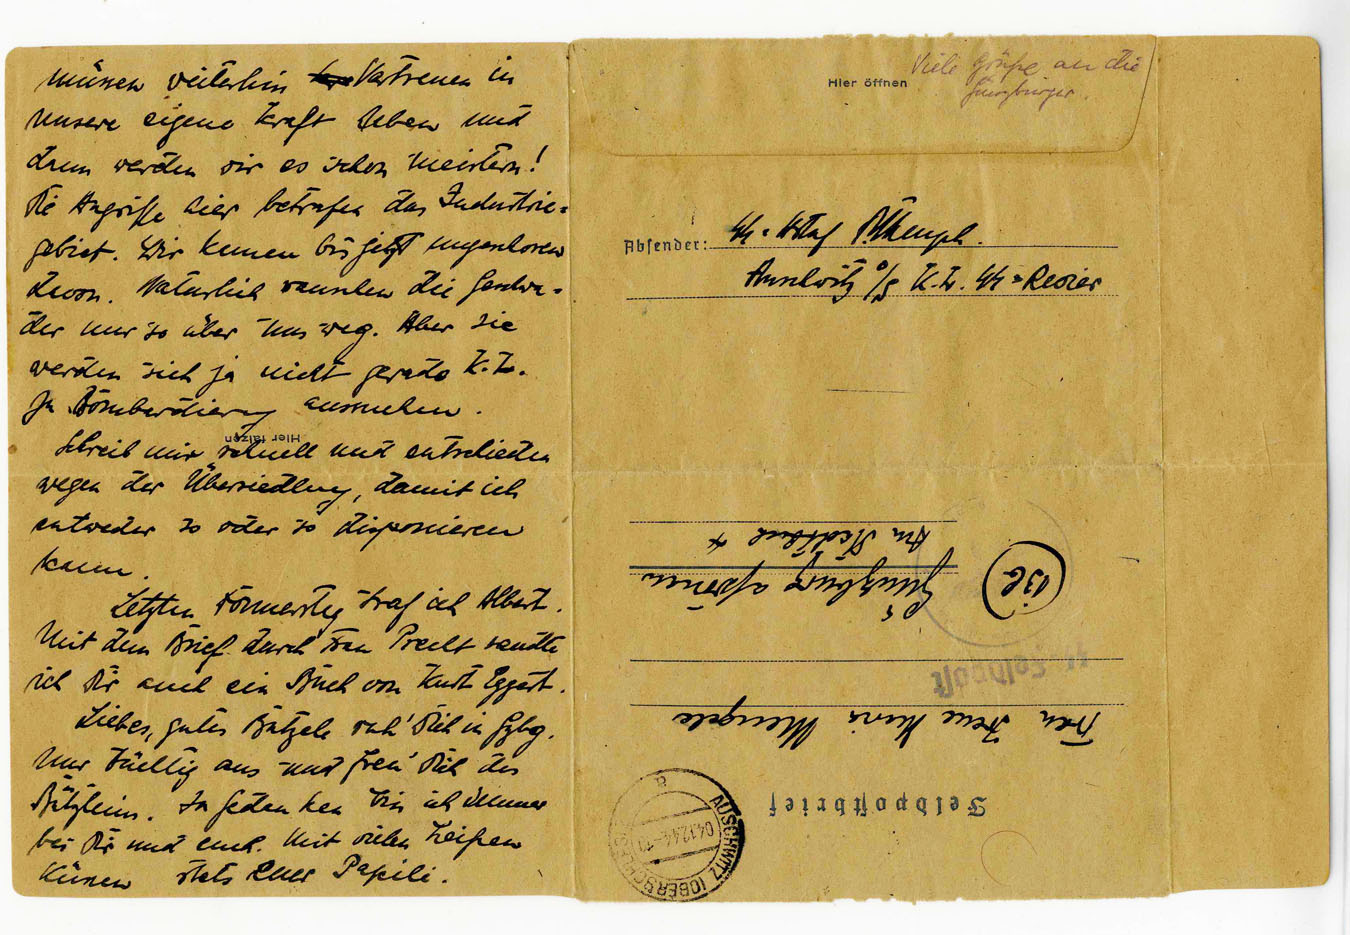 müssen weiterhin Vertrauen in
unsere eigene Kraft haben und
dann werden wir es schon meistern!
Die Angriffe hier betrafen das Industrie=
gebiet. Wir kamen bis jetzt ungeschoren
davon. Natürlich rauschen die Geschwa=
der nur so über uns weg. Aber sie
werden sich ja nicht gerade K.L.
zu Bombardierung aussuchen.
Hier falzen
Schreib mir schnell und entschieden
wegen der Übersiedlung, damit ich
entweder so oder so disponieren
kann.
Letzten Donnerstag traf ich Albert.
Mit dem Brief durch Frau sandte
ich Dir auch ein Buch von Kurt Eggert.
Liebes, gutes ruh' Dich in Gzbg.
nur tüchtig aus und freu' Dich des
In Gedanken bin ich immer
bei Dir und euch. Mit vielen heißen
Küssen stets Euer Papili.
Hier öffnen
Viele Grüße an die
Günzburger.
Absender: SS=
Auschwitz O/S K.L. SS=Revier
Feldpostbrief
AUSCHWITZ (OBERSCHLES)
04.12.44
a
Frau Irene Maria Mengele
SS-Feldpost
(13b)
Günzburg a/Donau
Am Stadtbach 4